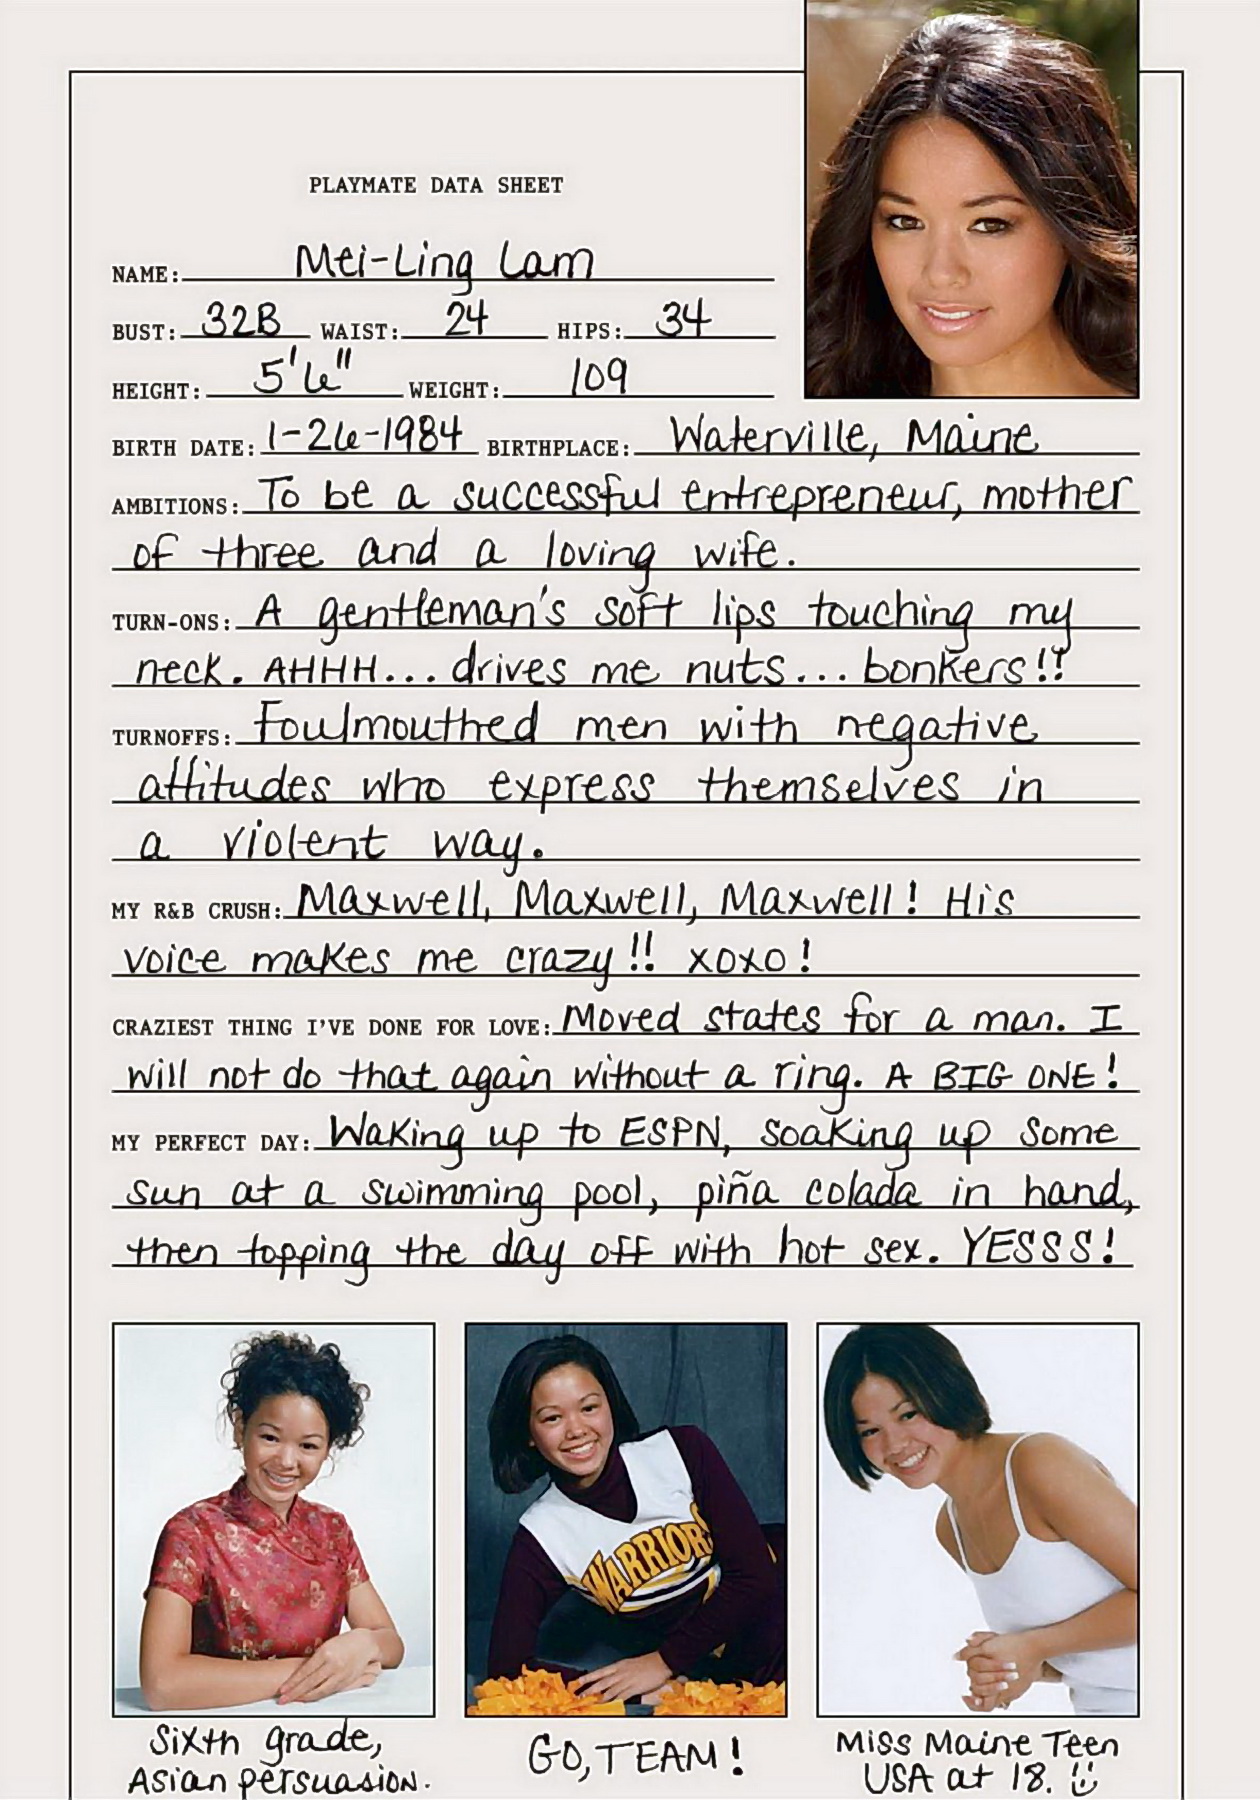 PLAYMATE DATA SHEET
NAME: Mei-Ling Lam
BUST: 32B WAIST: 24 HIPS: 34
HEIGHT: 5'6" WEIGHT: 109
BIRTH DATE: 1-26-1984 BIRTHPLACE: Waterville, Maine
AMBITIONS: To be a successful entrepreneur, mother
of three and a loving wife.
TURN-ONS: A gentleman's soft lips touching my
neck. AHHH... drives me nuts... bonkers!!
TURNOFFS: Foulmouthed men with negative
attitudes who express themselves in
a violent way.
MY R&B CRUSH: Maxwell, Maxwell, Maxwell! His
voice makes me crazy!! xoxo!
CRAZIEST THING I'VE DONE FOR LOVE: Moved states for a man. I
will not do that again without a ring. A BIG ONE!
MY PERFECT DAY: Waking up to ESPN, soaking up some
sun at a swimming pool, piña colada in hand,
then topping the day off with hot sex. YESSS!
WARRIORS
Sixth grade,
Asian persuasion.
GO, TEAM!
Miss Maine Teen
USA at 18.